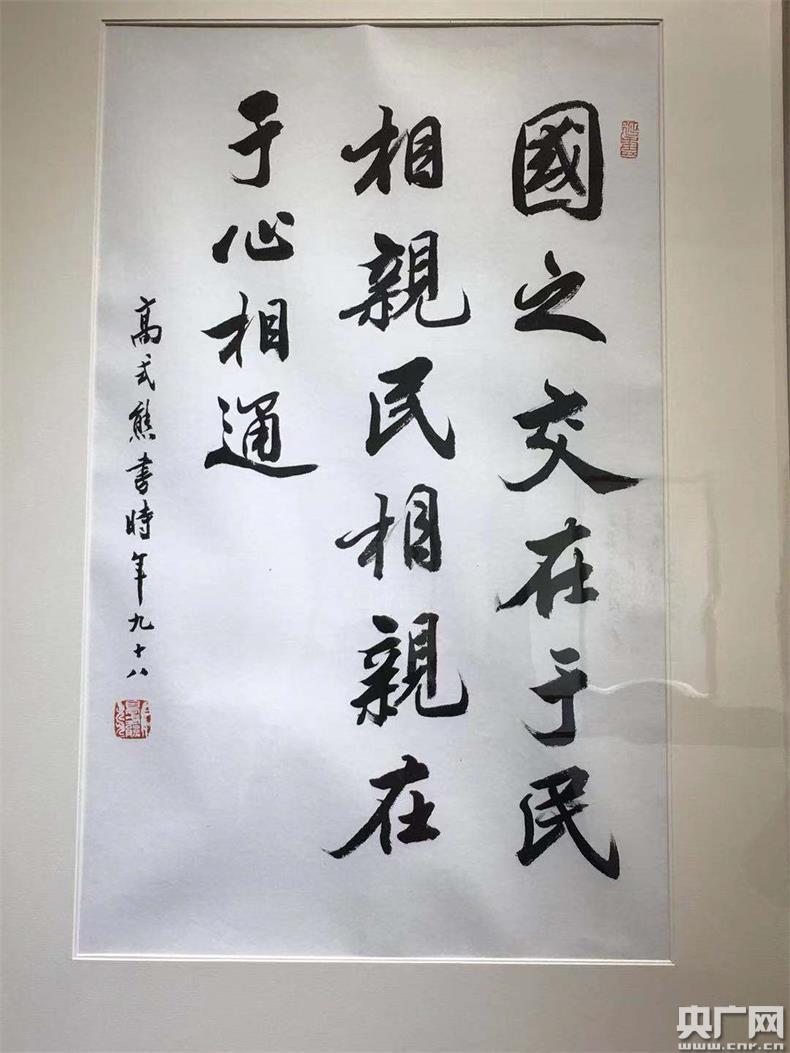 國之交在于民
相親民相親在
于心相通
高式熊書時年九十八
央广网
www.cnr.cn